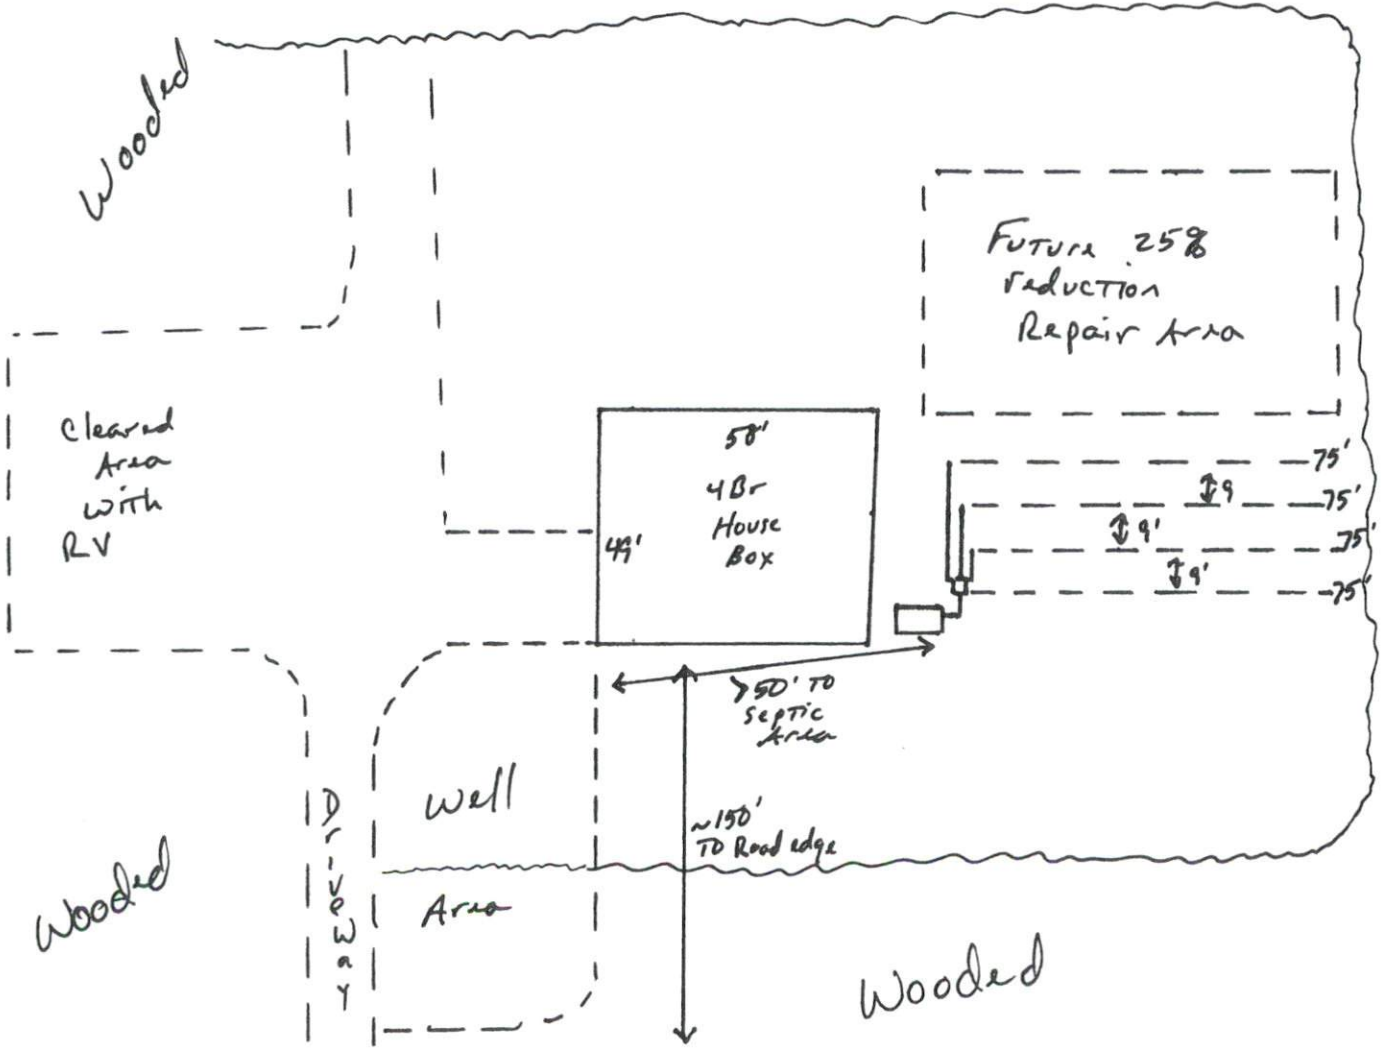 Wooded
Future 25%
reduction
Repair Area
Cleared
Area
with
RV
58'
4Br
House
Box
49'
75'
9
75'
9'
75'
9'
75'
>50' To
Septic
Area
Well
Area
~150'
To Road edge
Driveway
Wooded
Wooded